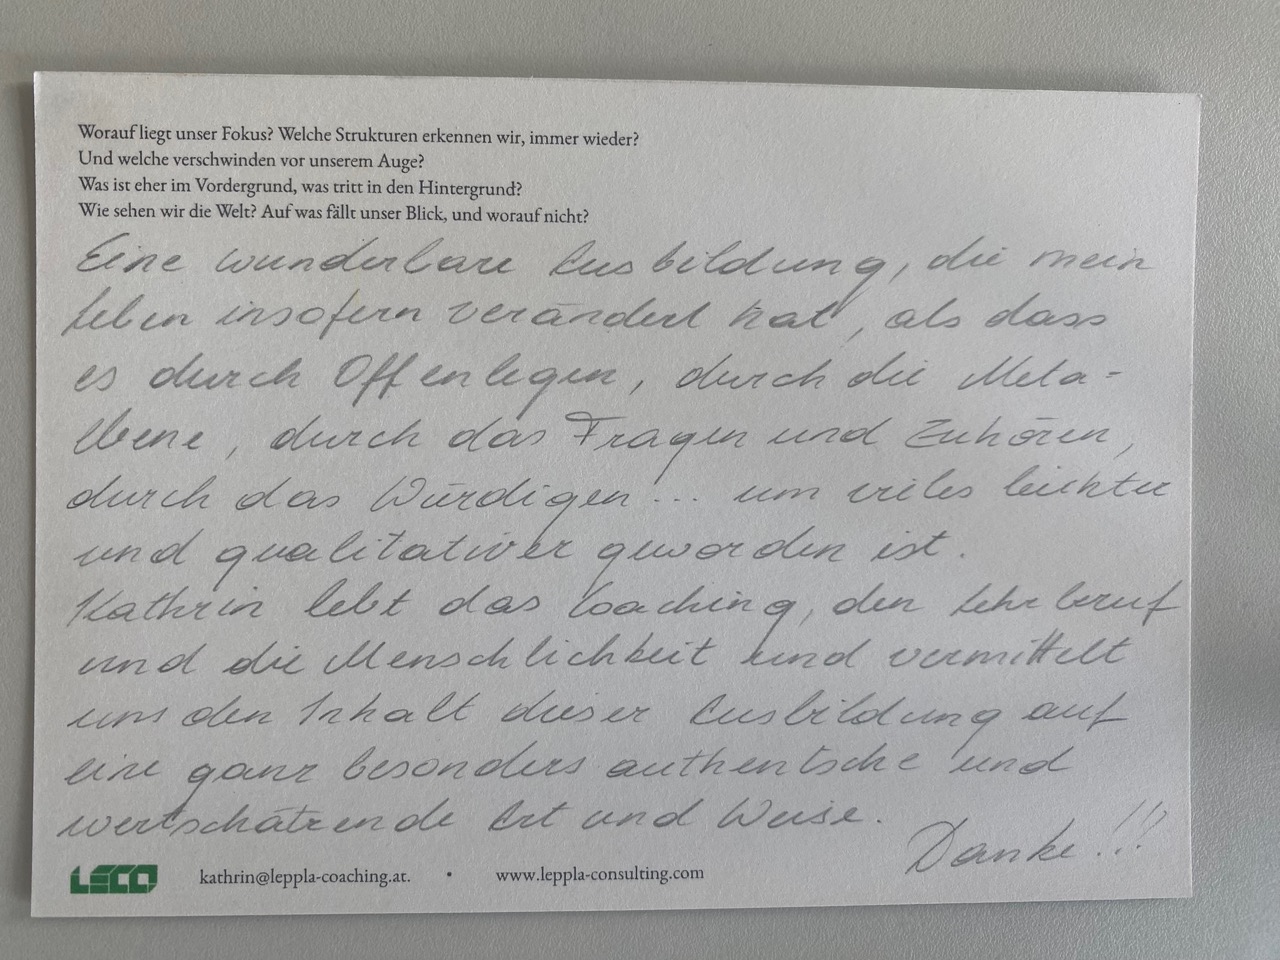 Worauf liegt unser Fokus? Welche Strukturen erkennen wir, immer wieder?
Und welche verschwinden vor unserem Auge?
Was ist eher im Vordergrund, was tritt in den Hintergrund?
Wie sehen wir die Welt? Auf was fällt unser Blick, und worauf nicht?
Eine wunderbare Ausbildung, die mein
Leben insofern verändert hat, als dass
es durch Offenlegen, durch die Meta-
Ebene, durch das Fragen und Zuhören,
durch das Würdigen ... um vieles leichter
und qualitativer geworden ist.
Kathrin lebt das Coaching, den Lehrberuf
und die Menschlichkeit und vermittelt
uns den Inhalt dieser Ausbildung auf
eine ganz besonders authentische und
wertschätzende Art und Weise.
Danke!!!
LECO kathrin@leppla-coaching.at. • www.leppla-consulting.com